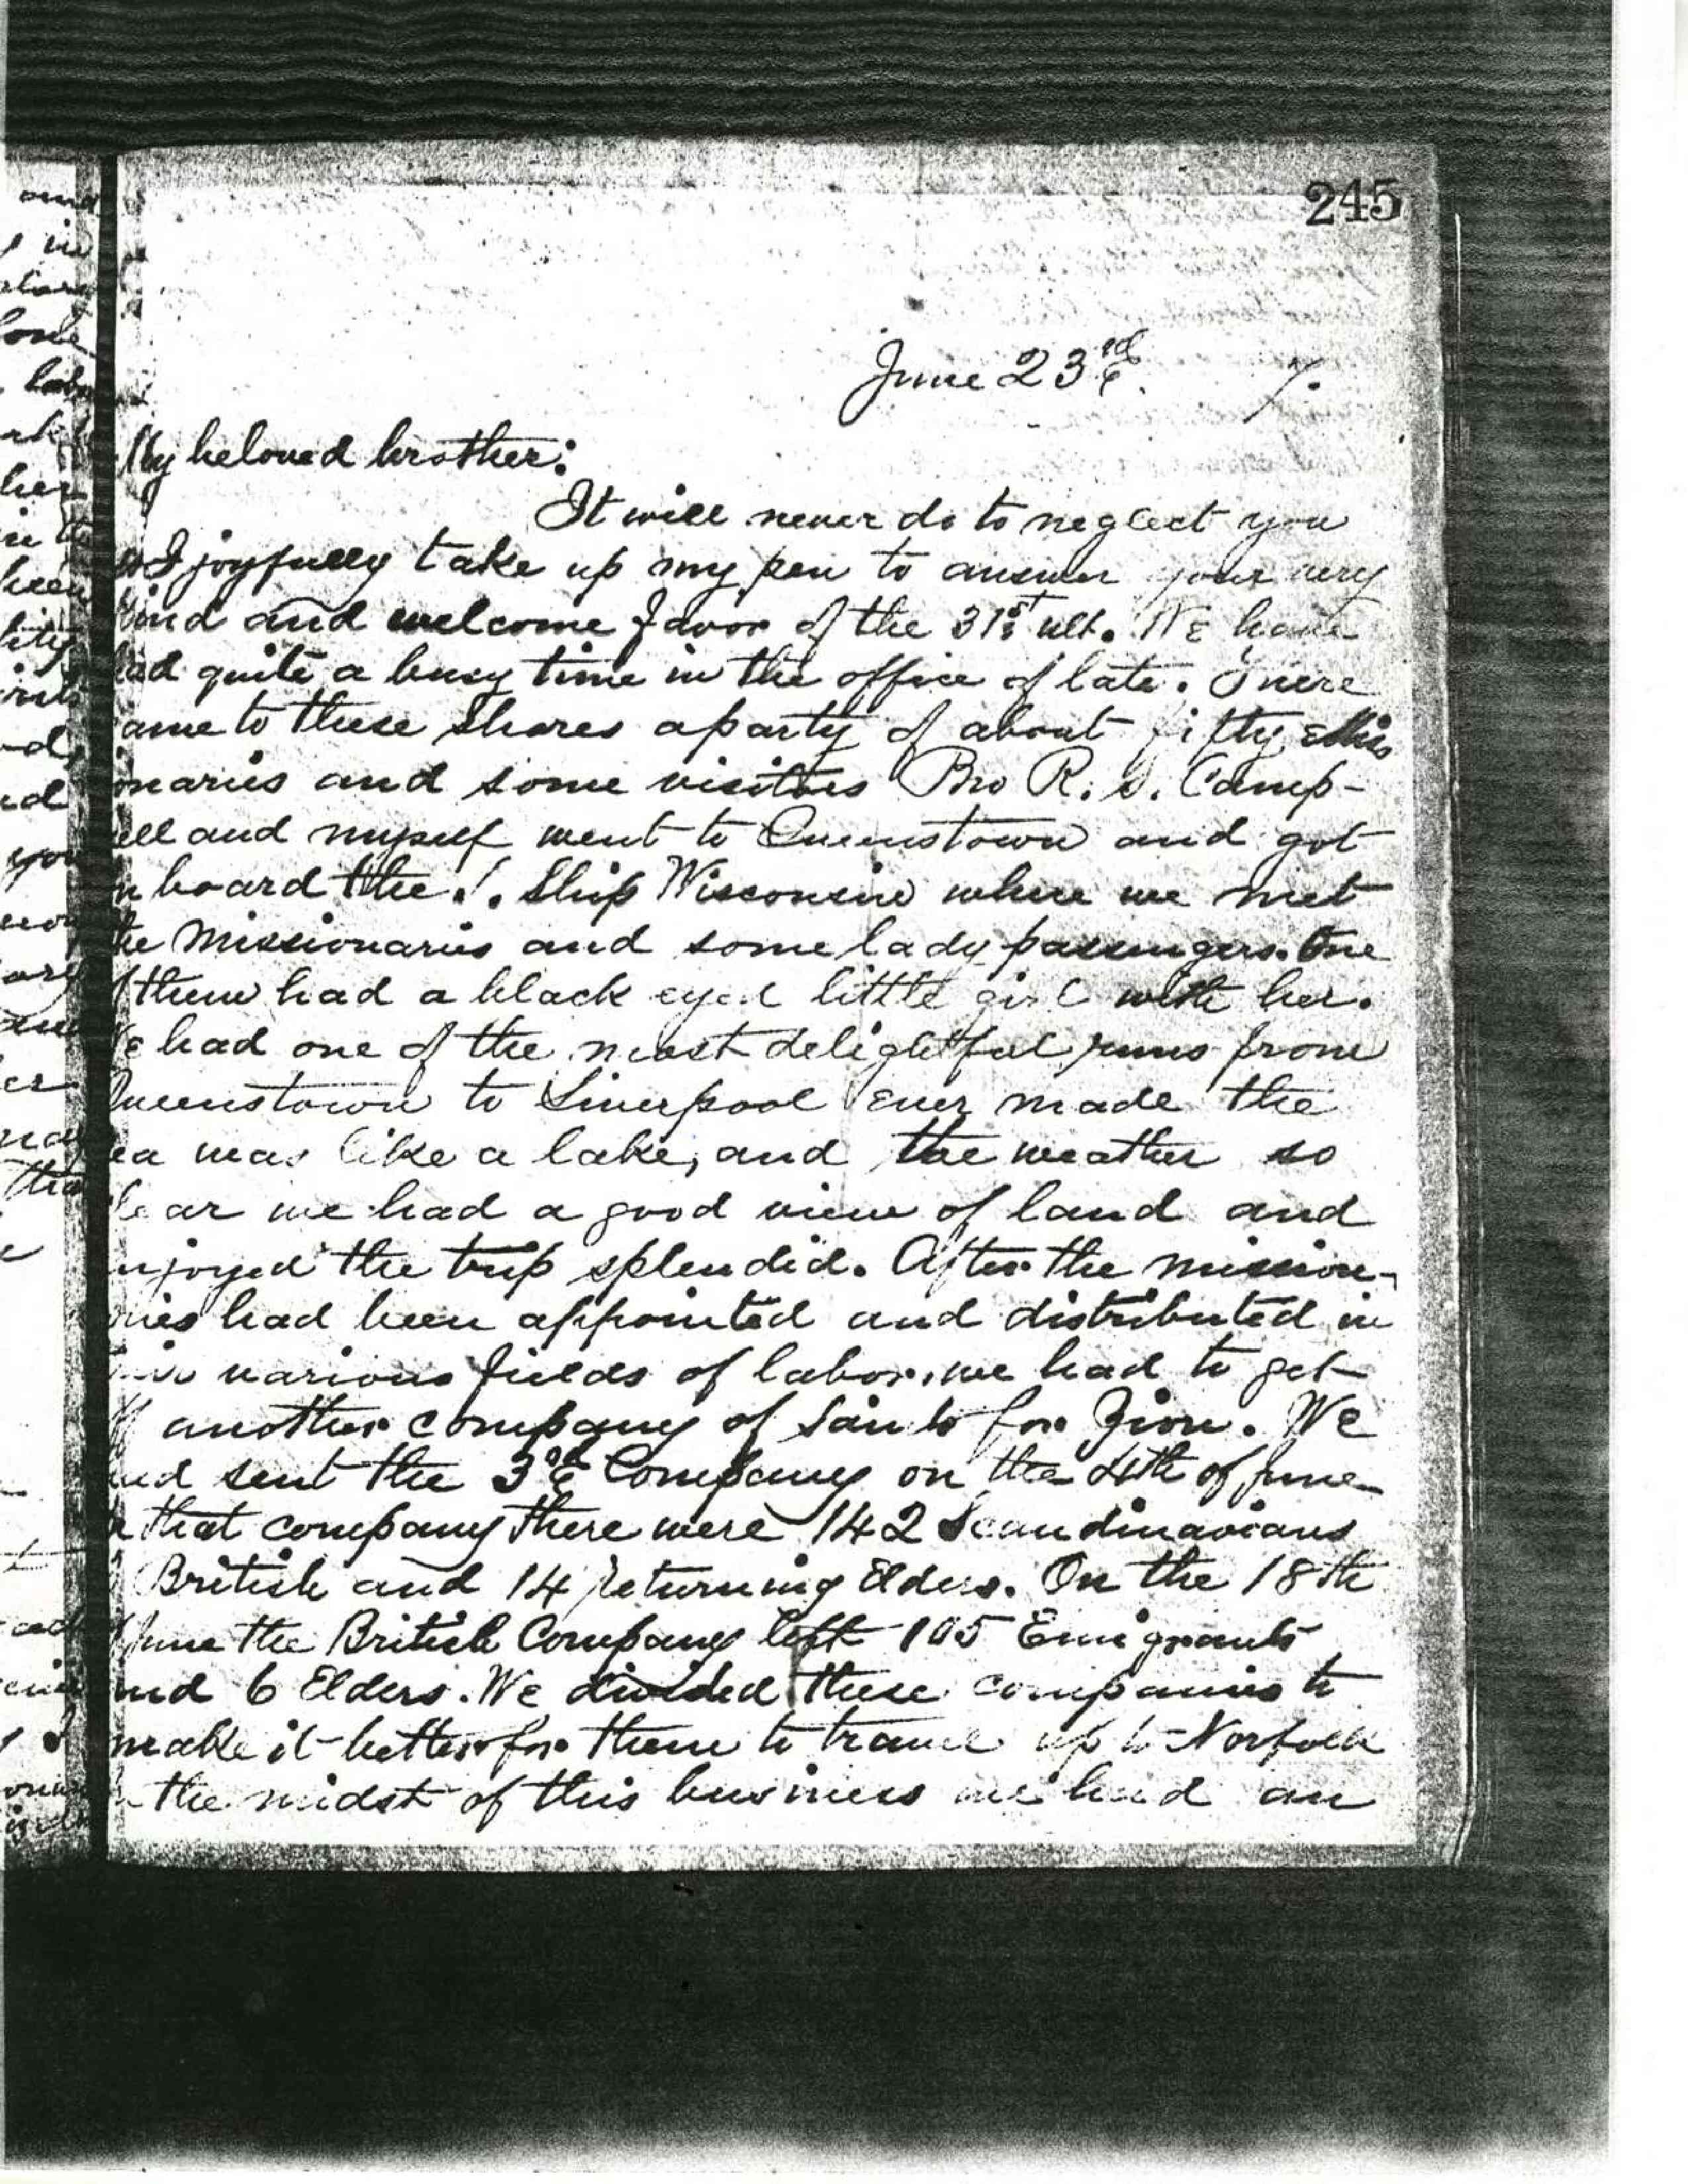 245
June 23rd 7.
My beloved brother:
It will never do to neglect you
so I joyfully take up my pen to answer your very
kind and welcome favor of the 31st ult. We have
had quite a busy time in the office of late. There
ame to these shores a party of about fifty Mis
onaries and some visitors Bro R. S. Camp-
ell and myself went to Queenstown and got
n board the S. Ship Wisconsin where we met
he Missionaries and some lady passengers. One
f them had a black eyed little girl with her.
We had one of the most delightful runs from
Queenstown to Liverpool ever made the
ea was like a lake, and the weather so
lear we had a good view of land and
njoyed the trip splendid. After the mission-
ries had been appointed and distributed in
various fields of labor, we had to get
ff another company of Saints for Zion. We
had sent the 3rd Company on the 4th of June
that company there were 142 Scandinavians
British and 14 returning Elders. On the 18th
f June the British Company left 105 Emigrants
and 6 Elders. We divided these companies to
make it better for them to travel up to Norfolk
the midst of this business we had an